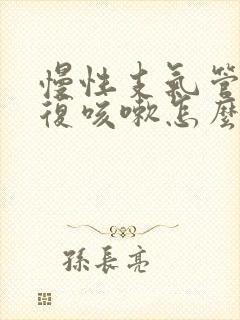 慢性支氣管
復咳嗽怎麼
孫長亮